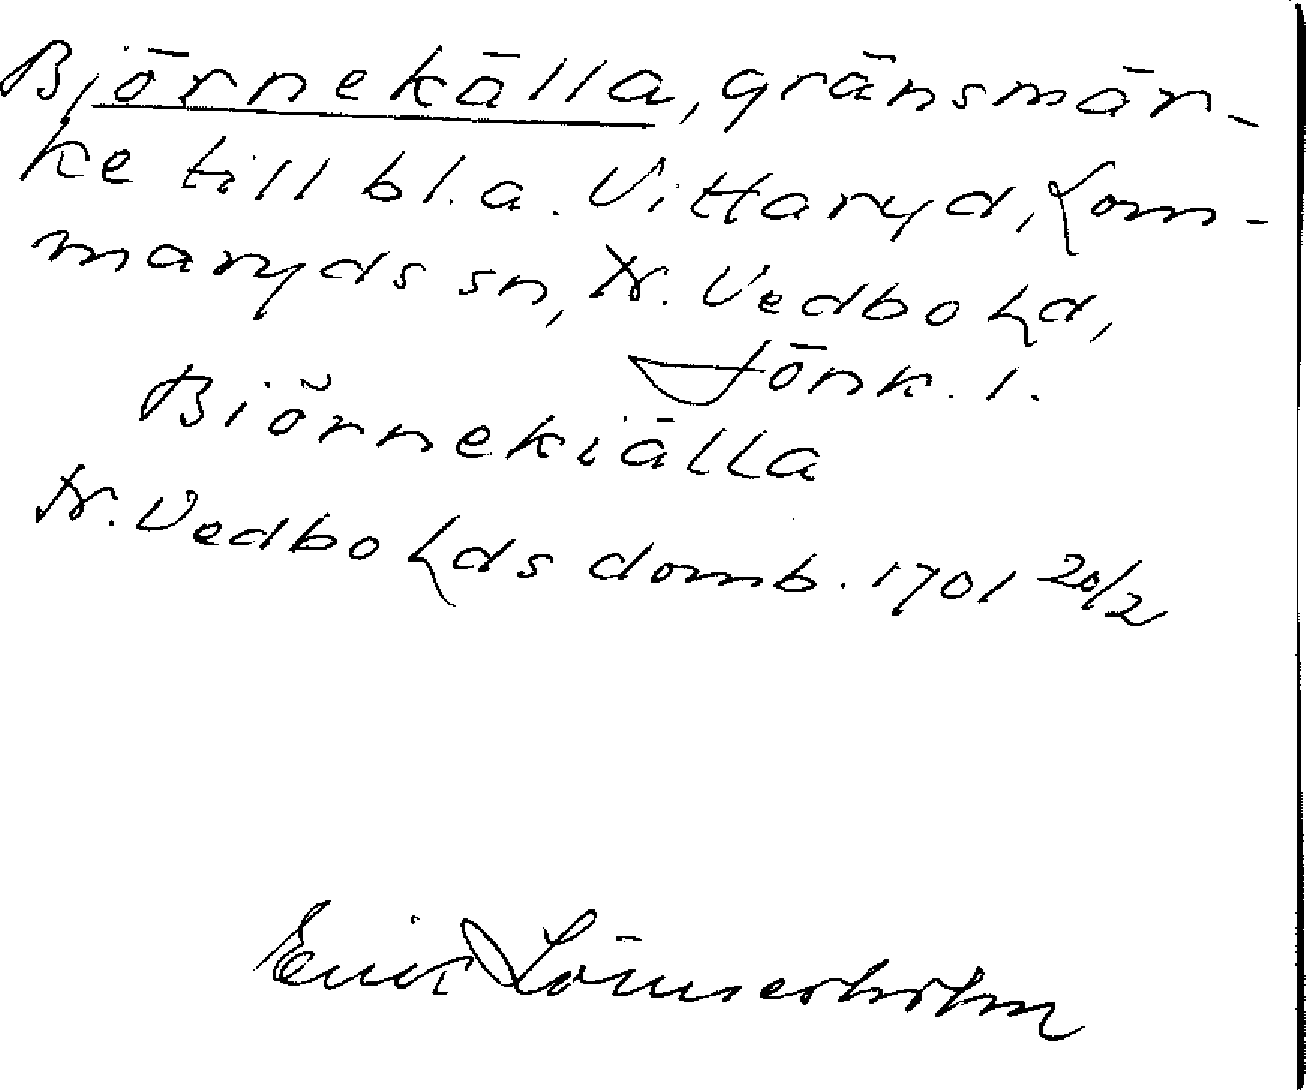 Björnekälla, gränsmär-
ke till bl.a. Vittaryd, Lom-
maryds sn, N. Vedbo hd,
Jönk. l.
Biörnekiälla
N. Vedbo hds domb. 1701 20/2
Erik Lönnerholm